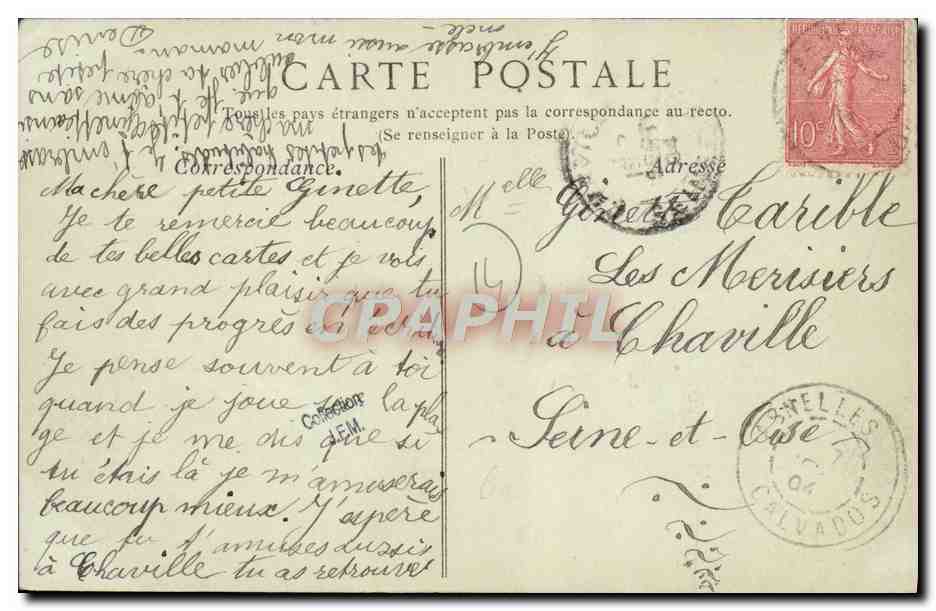 CARTE POSTALE
Tous les pays étrangers n'acceptent pas la correspondance au recto.
(Se renseigner à la Poste).
Correspondance.
Adresse
Ma chère petite Ginette,
Je te remercie beaucoup
de tes belles cartes et je vois
avec grand plaisir que tu
fais des progrès en
Je pense souvent à toi
quand je joue sur la pla
ge et je me dis que si
tu étais là je m'amuserais
beaucoup mieux. J'espère
que tu t'amuses aussi
à Chaville tu as retrouvé
tes petites
ma chère petite Ginette
que je t'aime sans
oublier ta chère petite
maman.
Denise
J'embrasse aussi mon
oncle
Melle Ginette Tarible
Les Merisiers
à Chaville
Seine-et-Oise
14
10c
CALVADOS
04
Collection
J.F.M.
CPAPHIL